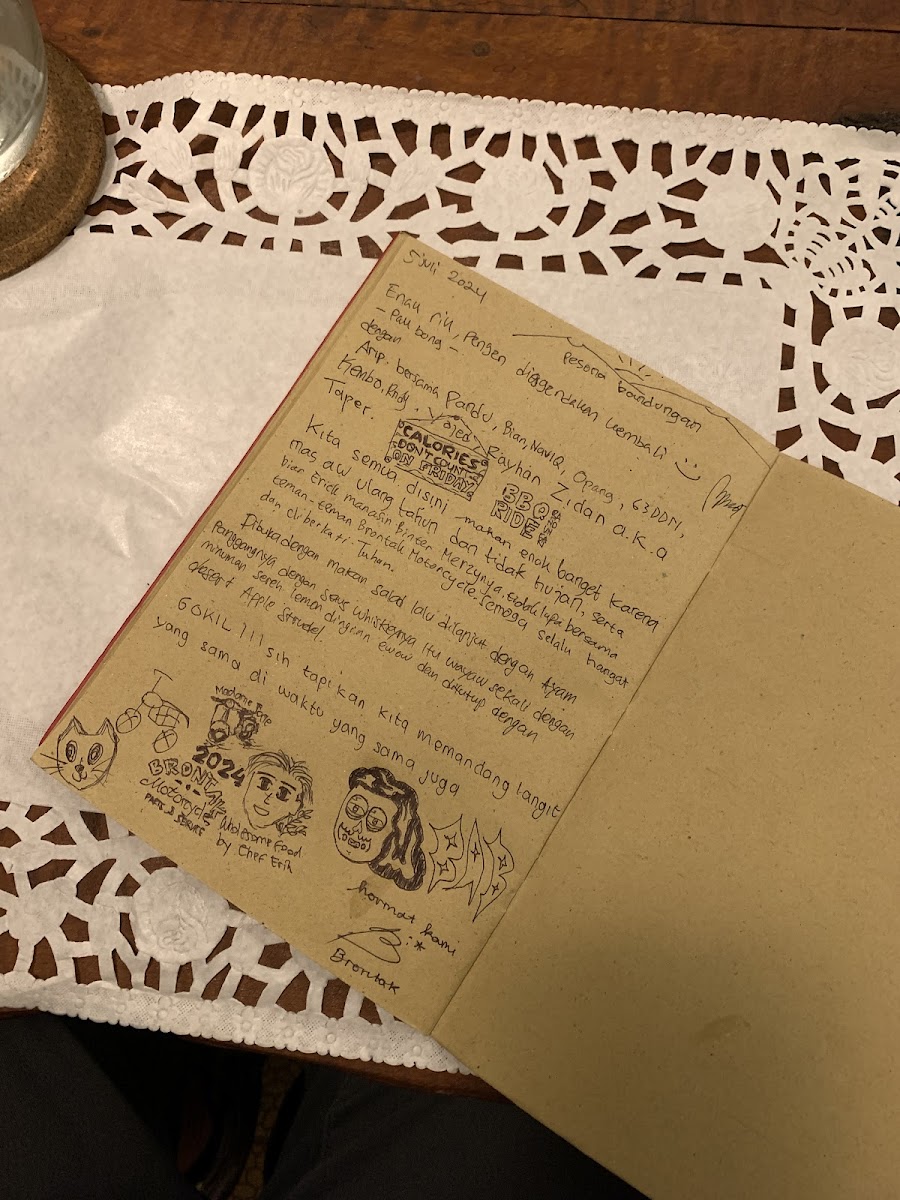 5 juli 2024
Enak riil, Pengen diggendakan kembali :)
- Pak bong -
pesona bandungan
dengan
Arip, bersama Pandu, Bian, NavIQ, Opang, G3DDM,
Kembo, Rndy, Rayhan Zidan a.k.a
Taper.
CALORIES
DON'T COUNT
ON FRIDAY
BBQ
RIDE
2024
Kita semua disini makan enak banget karena
mas aw ulang tahun dan tidak hujan, serta
bian Erick manasin Binter Merzynya, tidak lupa bersama
teman-teman Brontak Motorcycle. Semoga selalu hangat
dan diberkati Tuhan.
Dibuka dengan makan salad lalu dilanjut dengan ayam
panggangnya dengan saus whiskeynya itu wayaw sekali dengan
minuman sereh lemon dinginn ewow dan ditutup dengan
desert Apple Strudel
GOKIL !!! sih tapi kan kita memandang langit
yang sama di waktu yang sama juga
2024
BRONTAK
Motorcycle
PARTS & SERVIS
Wholesome Food
by Chef Erik
hormat kami
:*
Brontak